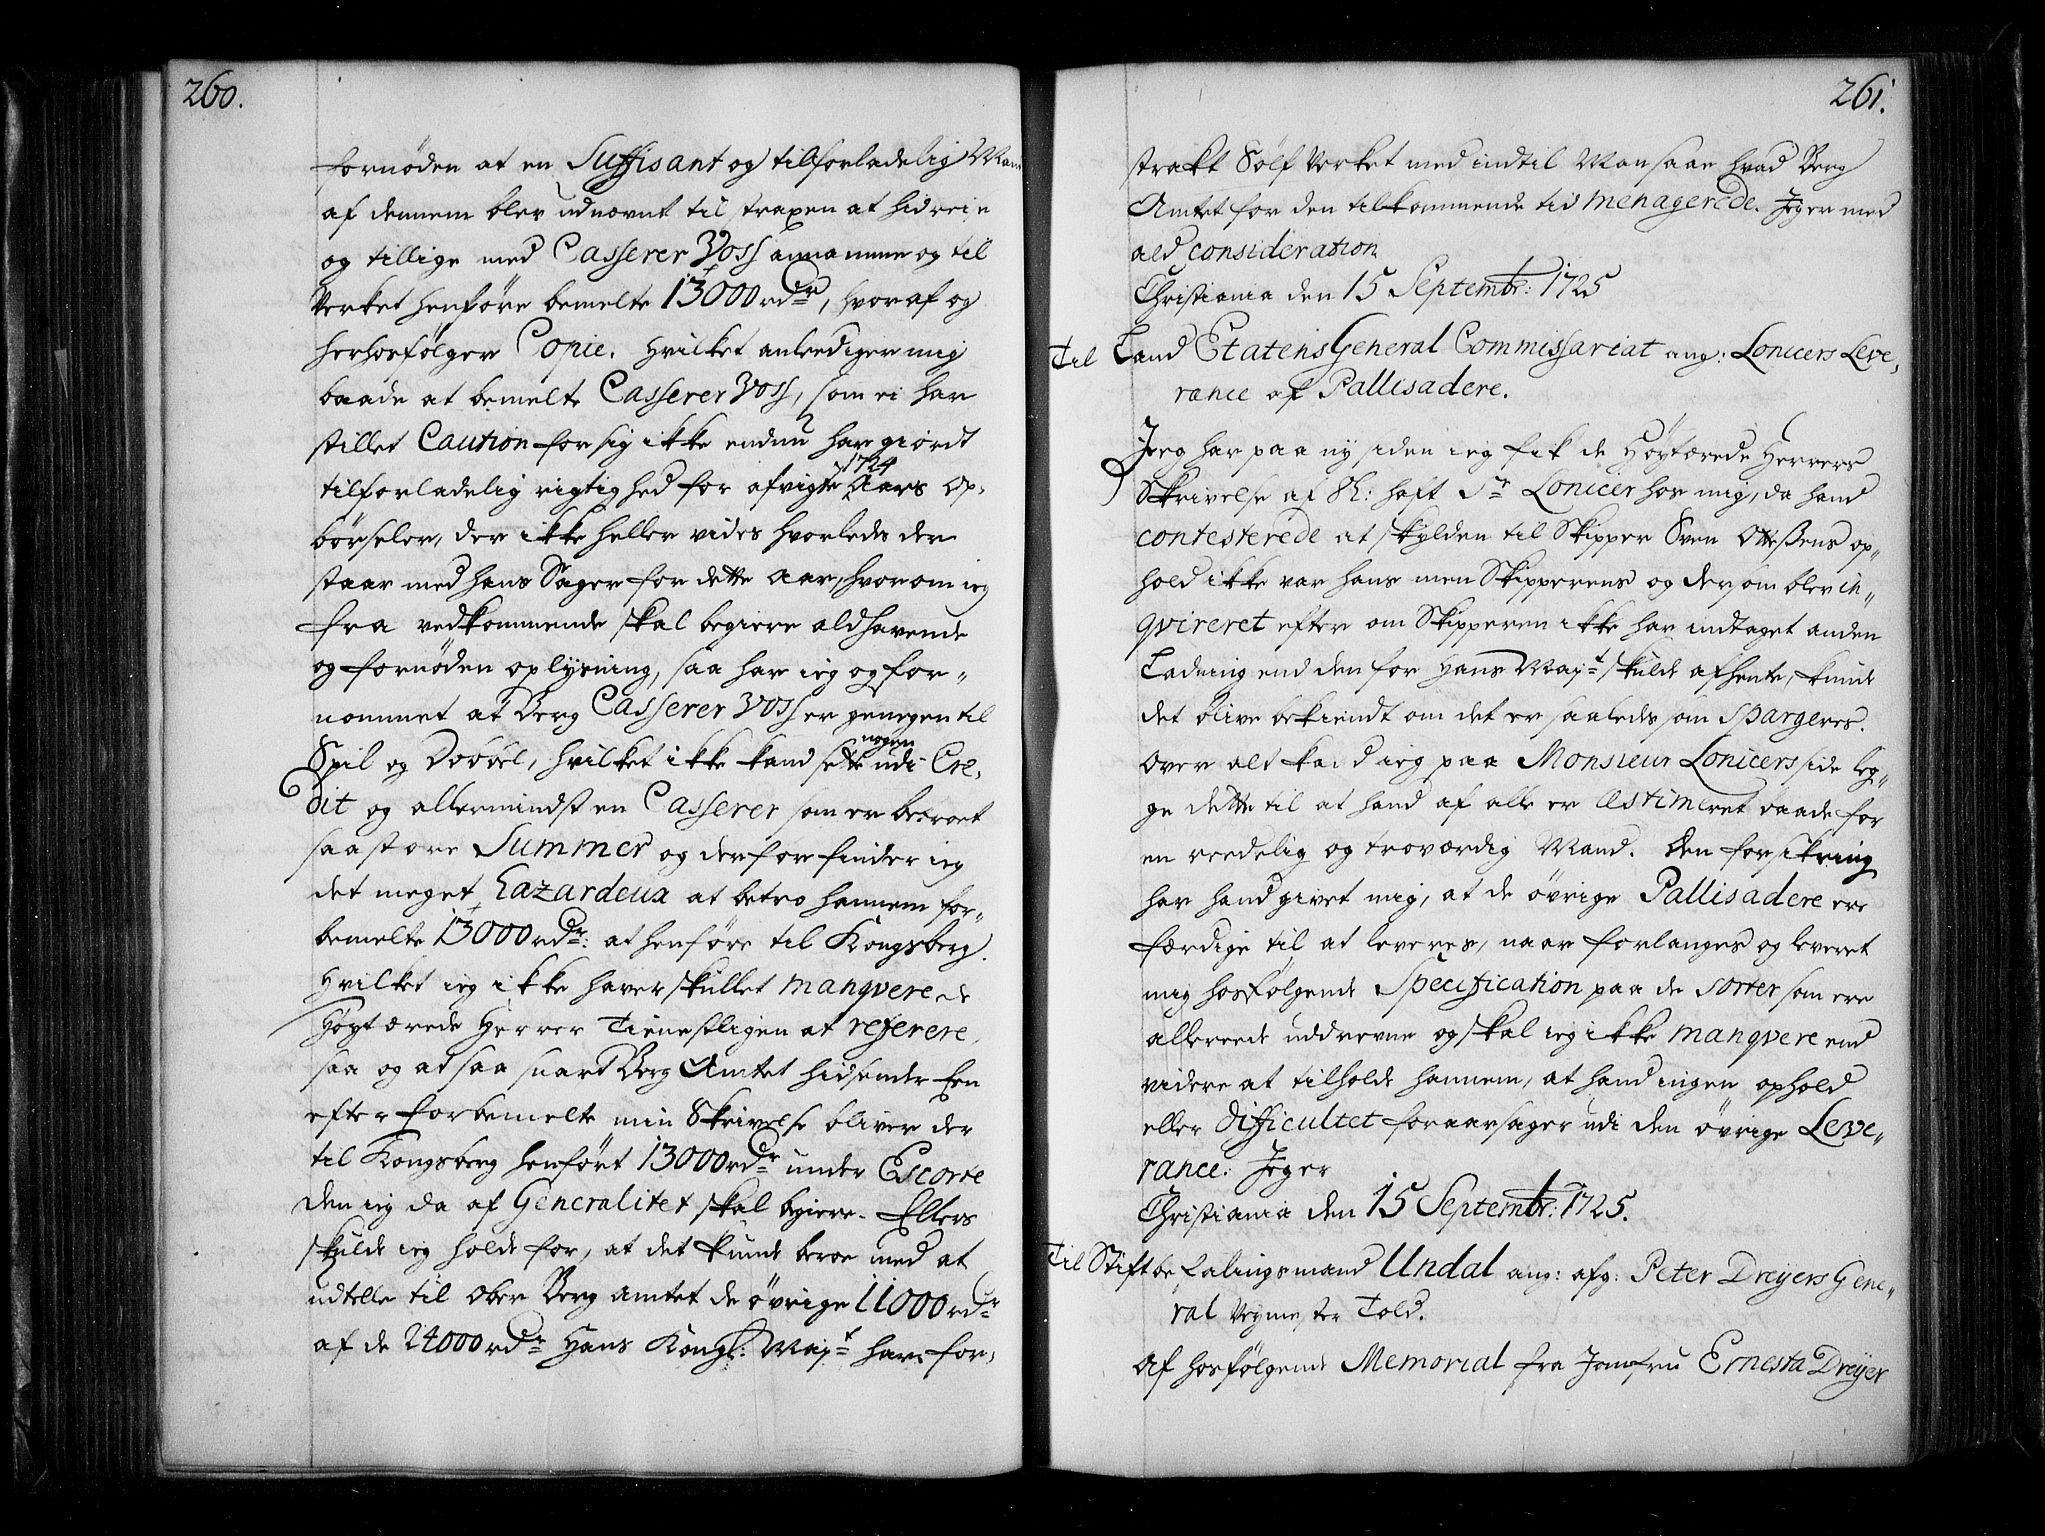 260.
fornøden at en Suffisant og tilforladelig Man
af dennem blev udnævnt til straxen at hidreise
og tillige med Casserer Voss annamme og til
Verket henføre bemelte 13000 rdr, hvoraf og
herhosfølger Copie. Hvilket anlediger mig
baade at bemelte Casserer Voss, som ei har
stillet Caution for sig ikke endnu har giordt
tilforladelig rigtighed for afvigte 1724 Aars op-
børseler, der ikke heller vides hvorledes der
staar med hans Sager for dette aar, hvorom ieg
fra vedkommende skal begiere aldhavende
og fornøden oplysning, saa har ieg og for-
nommet at Berg Casserer Voss er genegen til
Spil og Dobbel, hvilket ikke kand sette nogen udi Cre-
dit og allermindst en Casserer som er betroet
saa store Summer og derfor finder ieg
det meget hazardeux at betro hannem for-
bemelte 13000 rdr: at henføre til Kongsberg.
Hvilket ieg ikke haver skullet manqvere de
Høyt ærede Herrer Tienestligen at referere,
saa og at saa snart Berg Amtet hidsender Een
efter forbemelte min Skrivelse bliver der
til Kongsberg henført 13000 rdr under Escorte
den ieg da af Generalitet skal begiere. Ellers
skulde ieg holde for, at det kunde beroe med at
udtelle til Ober Berg amtet de øvrige 11000 rdr
af de 24000 rdr Hans Kongl: Mayt har for-
261.
strakt Sølf Verket med indtil Man saae hvad Berg
Amtet for den tilkommende tid menagerede. Jeg er med
ald consideration
Christiania den 15 Septembr: 1725
Til Land Etatens General Commissariat ang: Lonicers Leve-
rance af Pallisadere.
Jeg har paa ny siden ieg fik de Høytærede Herrers
Skrivelse af 8de: haft Sr Lonicer hos mig, da hand
contesterede at skylden til Skipper Sven Ottesens op-
hold ikke var hans men Skipperens og dersom blev in-
qvireret efter om Skipperen ikke har indtaget anden
Ladning end den for Hans Mayt skulde afhente, kunde
det blive bekiendt om det er saaledes som spargeres.
Over alt kand ieg paa Monsieur Lonicers side leg-
ge dette til at hand af alle er æstimeret baade for
en reedelig og troværdig Mand. Den forsikring
har hand givet mig, at de øvrige Pallisadere ere
færdige til at leveres, naar forlanges og leveret
mig hosfølgende Specification paa de sorter som ere
allereede uddrevne og skal ieg ikke manqvere end
videre at tilholde hannem, at hand ingen ophold
eller difficultet foraarsager udi den øvrige Leve-
rance. Jeg er
Christiania den 15 Septembr: 1725.
Til Stiftbefalingsmand Undal ang: afg: Peter Dreyers Gene-
ral Veymester Told.
Af hosfølgende Memorial fra Jomfru Ernesta Dreyer